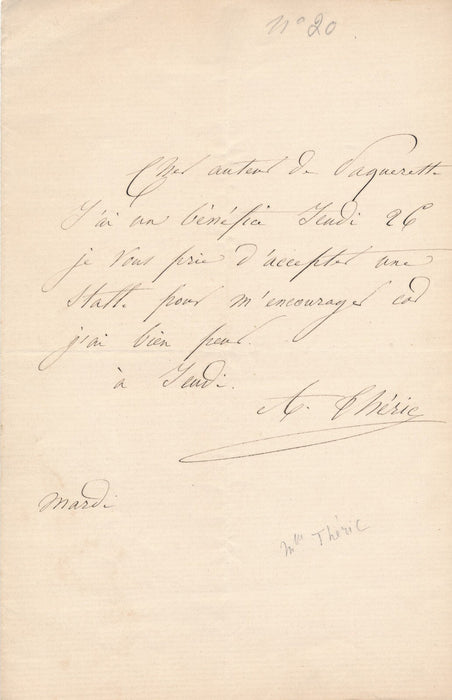 n° 20
Cher auteur de Paquerette
J'ai un bénéfice Jeudi 26
je vous prie d'accepter une
stalle pour m'encourager car
j'ai bien peur.
à Jeudi.
A. Théric
mardi
Mlle Théric